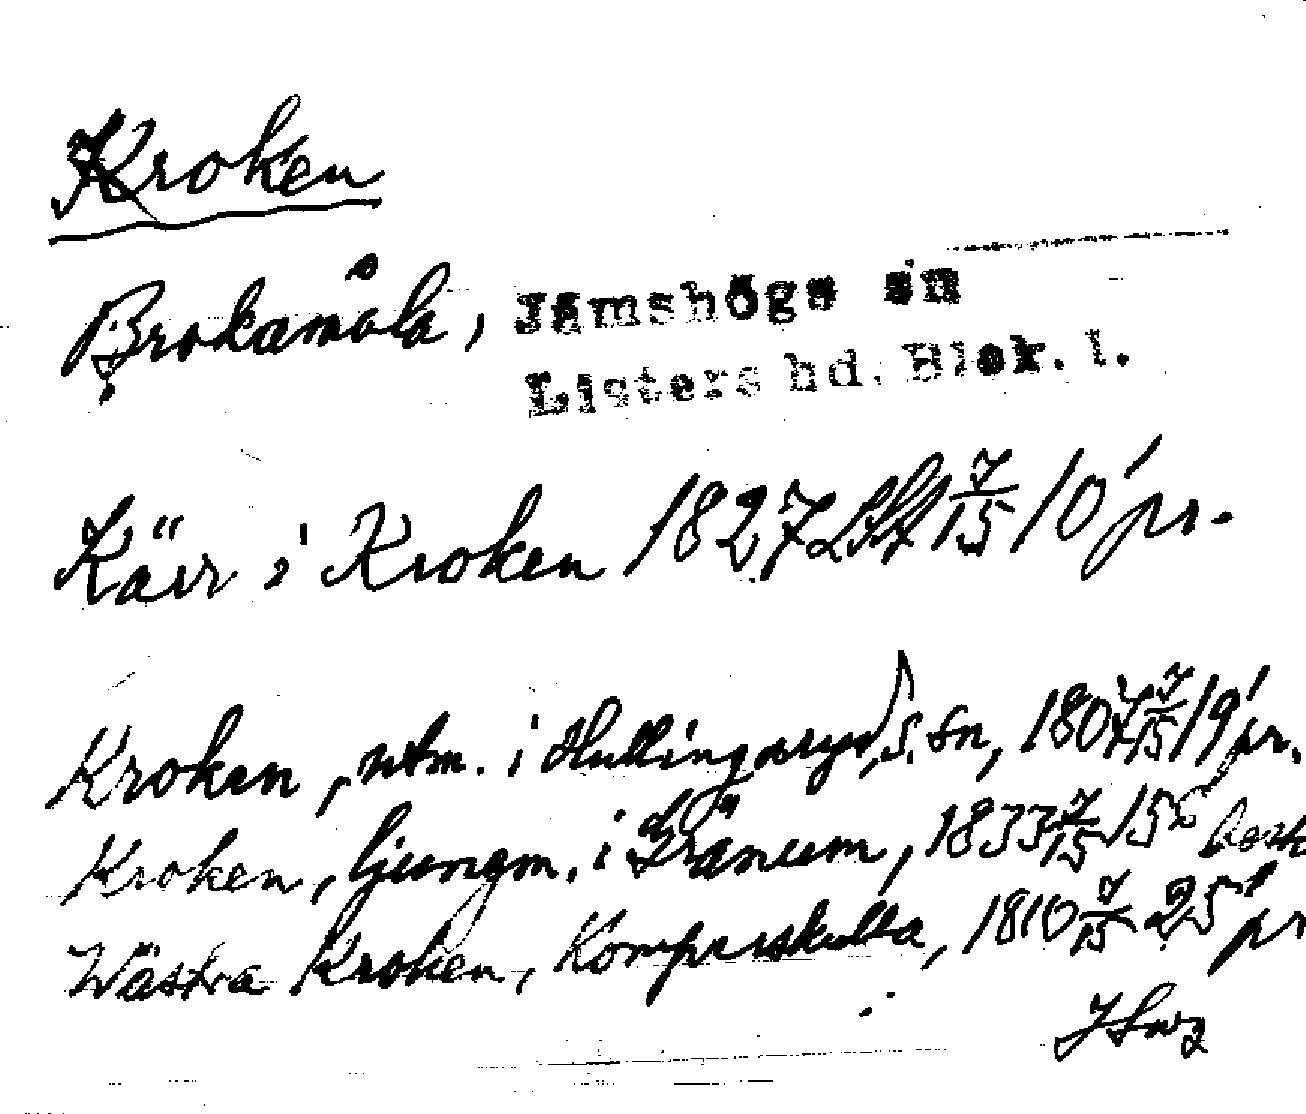 Kroken
Brokamåla, Jämshögs sn
Listers hd. Blek. l.
Kärr i Kroken 1827 LSA 7/15 10' pr.
Kroken, utm. i Hullingaryd, s. sn, 1807 7/15 19' pr.
Kroken, ljungm. i Gränum, 1833 7/15 15
Wästra Kroken, Komperskulla, 1810 7/15 25' pr